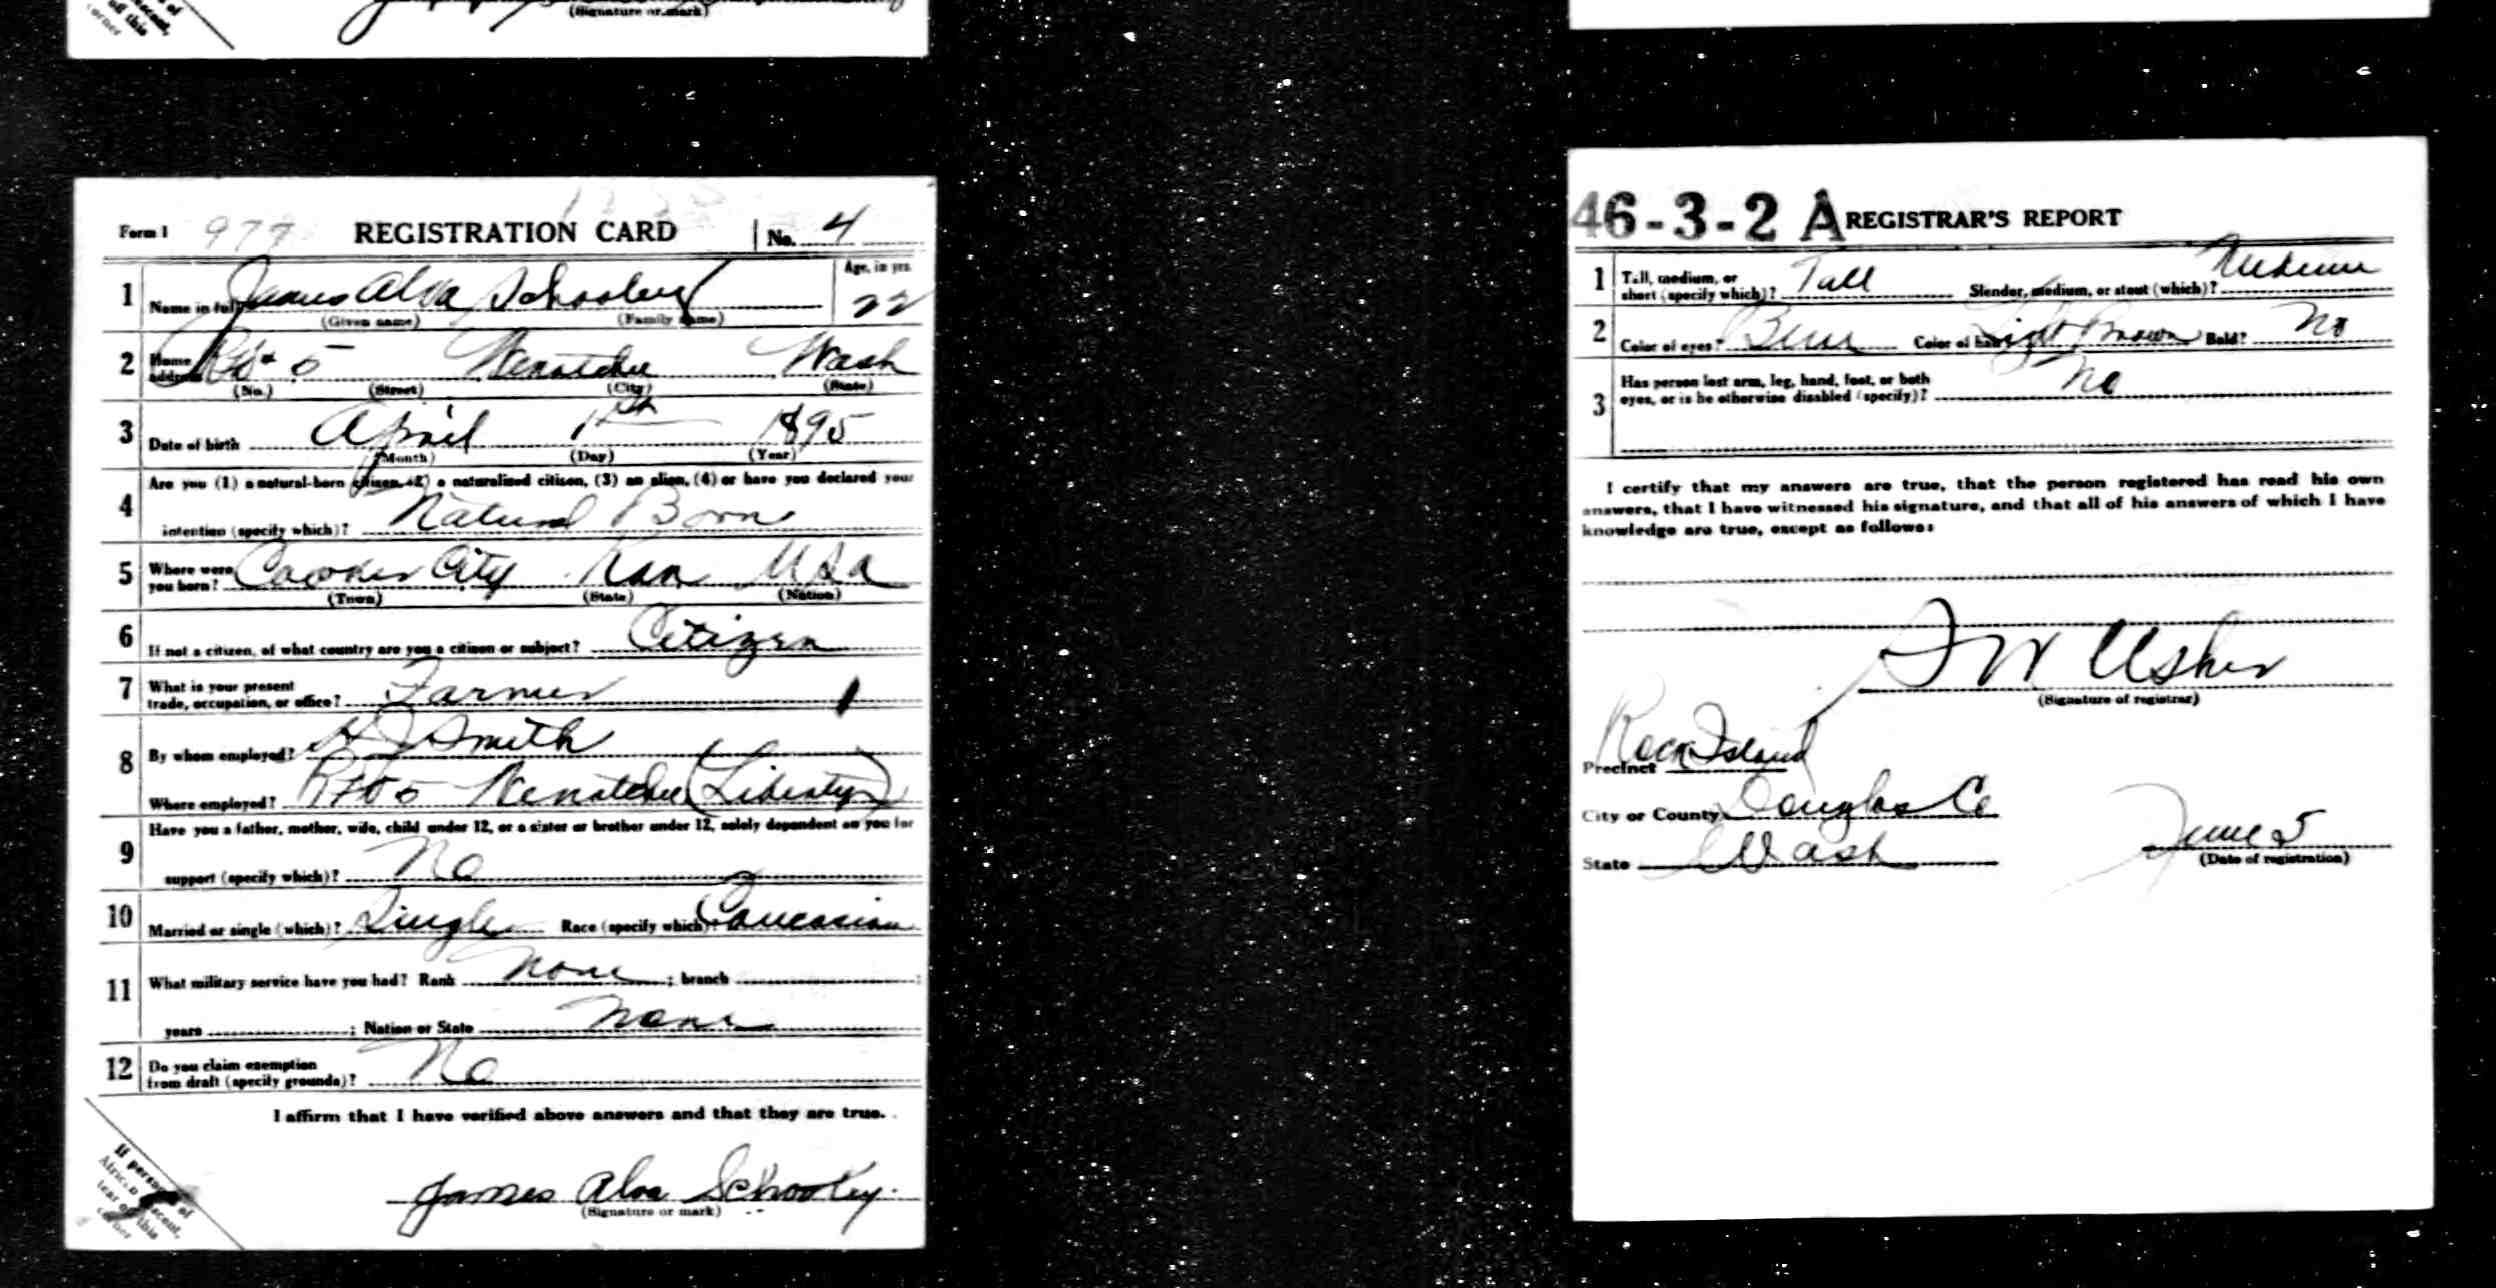 of this
corner
(Signature or mark)
Form 1 REGISTRATION CARD No. 4
1 Name in full James Alva Schooley Age, in yrs. 22
(Given name) (Family name)
2 Home address 5 Wenatchee Wash
(No.) (Street) (City) (State)
3 Date of birth April 1st 1895
(Month) (Day) (Year)
4 Are you (1) a natural-born citizen, (2) a naturalized citizen, (3) an alien, (4) or have you declared your
intention (specify which)? Natural Born
5 Where were you born? Cawker City Kan USA
(Town) (State) (Nation)
6 If not a citizen, of what country are you a citizen or subject? Citizen
7 What is your present
trade, occupation, or office? Farmer 1
8 By whom employed? Smith
Where employed? 5 Wenatchee (Liberty)
9 Have you a father, mother, wife, child under 12, or a sister or brother under 12, solely dependent on you for
support (specify which)? No
10 Married or single (which)? Single Race (specify which)? Caucasian
11 What military service have you had? Rank none ; branch ;
years ; Nation or State none
12 Do you claim exemption
from draft (specify grounds)? No
I affirm that I have verified above answers and that they are true.
James Alva Schooley.
(Signature or mark)
If person of
African descent,
tear off this
corner
46-3-2 A REGISTRAR'S REPORT
1 Tall, medium, or
short (specify which)? Tall Slender, medium, or stout (which)? Medium
2 Color of eyes? Color of hair? Light Brown Bald? No
3 Has person lost arm, leg, hand, foot, or both
eyes, or is he otherwise disabled (specify)? No
I certify that my answers are true, that the person registered has read his own
answers, that I have witnessed his signature, and that all of his answers of which I have
knowledge are true, except as follows:
Usher
(Signature of registrar)
Precinct Rock Island
City or County Douglas Co
State Wash June 5
(Date of registration)